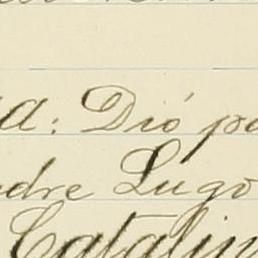 a: Dió pa
dre Lugo
Catalin